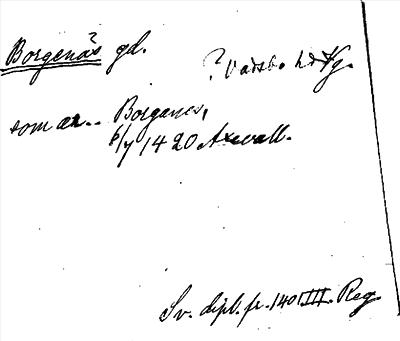 Borgenäs gd.
? Vadsbo hd Vg.
som ær.. Borganes,
6/7 1420 Axevall.
Sv. dipl. fr. 1401 III. Reg.